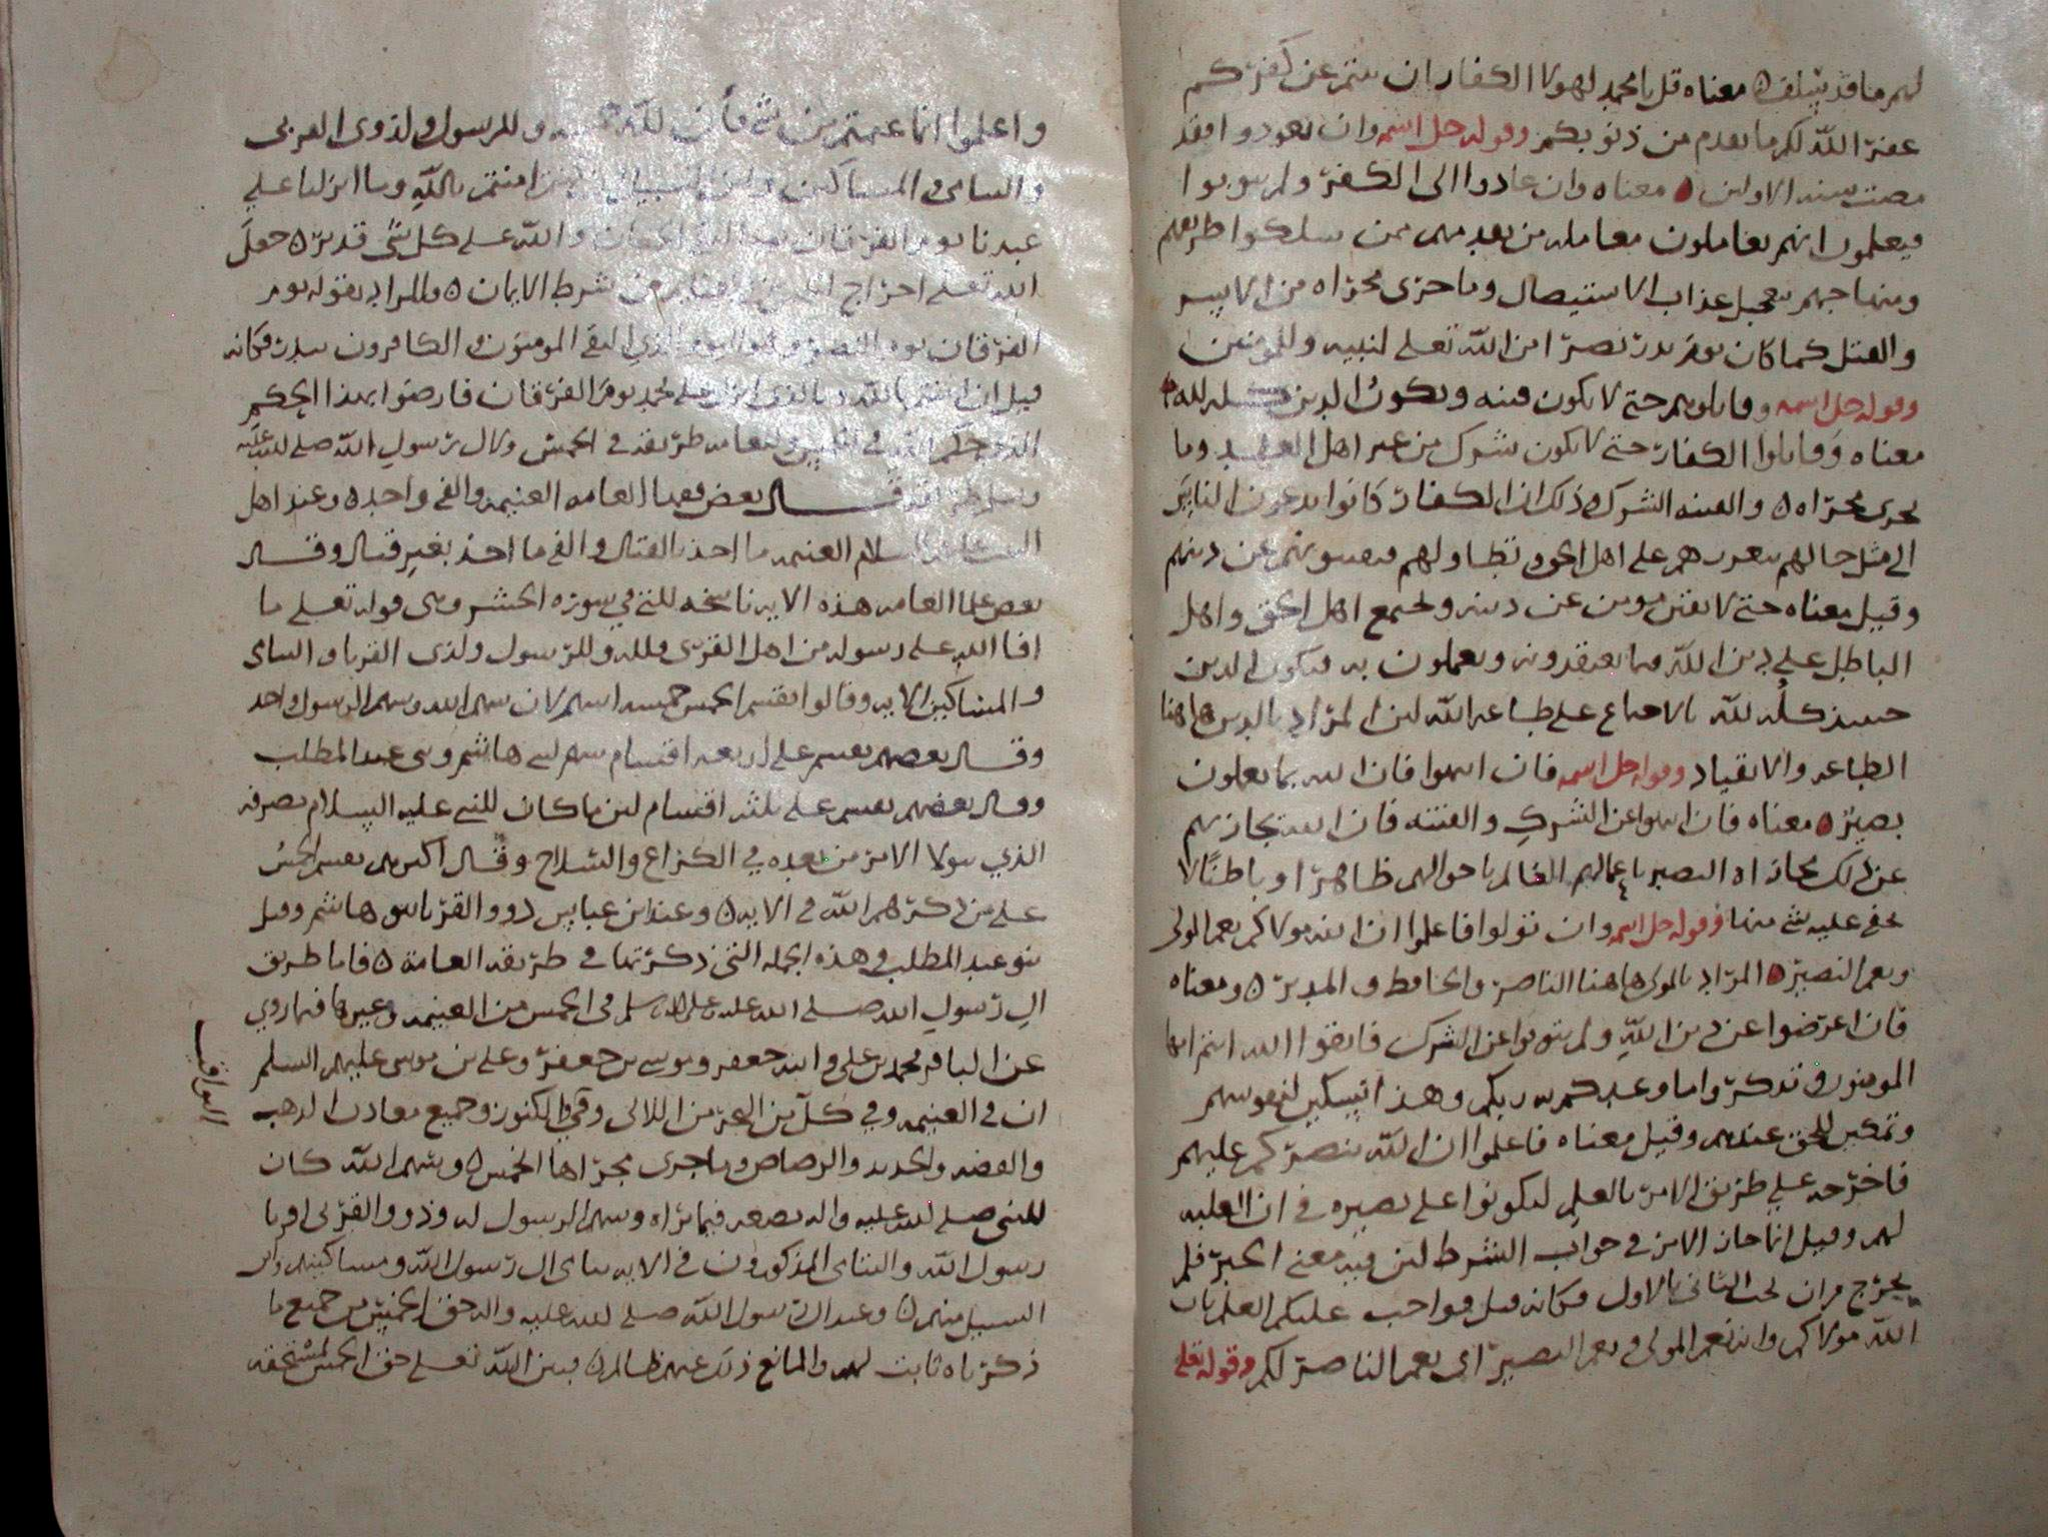 لهم ما قد سلف ه معناه قل يا محمد لهولا الكفار ان تبتم عن كفركم
غفر الله لكم ما تقدم من ذنوبكم وقوله جل اسمه وان يعودوا فقد
مضت سنة الاولين ه معناه وان عادوا الى الكفر ولم يتوبوا
فيعلموا انهم يعاملون معاملة من تقدمهم ممن سلكوا طريقهم
ومنهاجهم بتعجيل عذاب الاستيصال وما جرى مجراه من الاسر
والقتل كما كان يوم بدر نصرا من الله تعلى لنبيه وللمومنين
وقوله جل اسمه وقاتلوهم حتى لا تكون فتنه ويكون الدين كله لله ه
معناه وقاتلوا الكفار حتى لا يكون شرك من غير اهل العهد وما
يجري مجراه ه والفتنه الشرك وذلك ان الكفار كانوا يدعون الناس
الى مثل حالهم بتعززهم على اهل الحق وتطاولهم فيفتنونهم عن دينهم
وقيل معناه حتى لا يفتن مومن عن دينه ولجمع اهل الحق واهل
الباطل على دين الله فيما يعتقدونه ويعملون به فيكون الدين
حينيذ كله لله بالاجماع على طاعه الله لان المراد بالدين هاهنا
الطاعه والانقياد وقوله جل اسمه فان انتهوا فان الله بما يعملون
بصير ه معناه فان انتهوا عن الشرك والفتنه فان الله تجازيهم
عن ذلك مجازاه البصير باعمالهم العالم باحوالهم ظاهرا وباطنا لا
يخفى عليه شي منها وقوله جل اسمه وان تولوا فاعلموا ان الله مولاكم نعم المولى
ونعم النصير ه المراد بالمولى هاهنا الناصر والحافظ والمدبر ه ومعناه
فان اعرضوا عن دين الله ولم يتوبوا عن الشرك فاتقوا الله انتم ايها
المومنون وتذكروا ما وعدكم به ربكم وهذا تسكين لنفوسهم
وتمكين للحق عندهم وقيل معناه فاعلموا ان الله ينصركم عليهم
فاخرجه على طريق الامر بالعلم ليكونوا على بصيره في ان الغلبه
لهم وقيل انما جاز الامر في جواب الشرط لان فيه معنى الخبر فلم
يخرج من ان يجب الثاني بالاول فكانه قيل فواجب عليكم العلم بان
الله مولاكم وانه نعم المولى ونعم النصير اي نعم الناصر لكم وقوله تعلى
واعلموا انما غنمتم من شي فان لله خمسه وللرسول ولذوى القربى
واليتامى والمساكين وابن السبيل ان كنتم امنتم بالله وما انزلنا على
عبدنا يوم الفرقان يوم التقى الجمعان والله على كل شي قدير ه جعل
الله تعلى اخراج الخمس من الغنايم من شرط الايمان ه والمراد بقوله يوم
الفرقان يوم النصر وهو اليوم الذي التقى المومنون الكافرون ببدر فكانه
قيل ان امنتم بالله وبالذي انزل على محمد يوم الفرقان فارضوا بهذا الحكم
الذي حكم الله في الخمس وللعامه طريقه في الخمس ولال رسول الله صلى الله عليه
وسلم طريقه قال بعض فقها العامه الغنيمه والفي واحد ه وعند اهل
البيت عليهم السلام الغنيمه ما اخذ بالقتال والفي ما اخذ بغير قتال وقال
بعض علما العامه هذه الايه ناسخه للتي في سورة الحشر وهي قوله تعلى ما
افا الله على رسوله من اهل القرى فلله وللرسول ولذى القربا واليتامى
والمساكين الايه وقالوا يقسم الخمس خمسه اسهم لان سهم الله وسهم الرسول واحد
وقال بعضهم يقسم على اربعه اقسام سهم لبني هاشم وبني عبد المطلب
وقال بعضهم يقسم على ثلثه اقسام لان ما كان للنبي عليه السلام يصرفه
الذي يتولا الامر من بعده في الكراع والسلاح وقال اكثرهم يقسم الخمس
على من ذكرهم الله في الايه ه وعند ابن عباس ذوو القربا بنو هاشم وقيل
بنو عبد المطلب وهذه الجمله التي ذكرتها في طريقه العامة ه فاما طريق
ال رسول الله صلى الله عليه وعلى اله وسلم في الخمس من الغنيمه وغيرها فما روي
عن الباقر محمد بن علي وابنه جعفر وموسى بن جعفر وعلي بن موسى عليهم السلم
ان في الغنيمه وفي كل من البحر من اللالى وفي الكنوز وجميع معادن الذهب
والفضه والحديد والرصاص وما جرى مجراها الخمس ه وسهم الله كان
للنبي صلى الله عليه واله يضعه فيما يراه وسهم الرسول له وذوو القربى اقربا
رسول الله واليتامى المذكورون في الايه يتامى ال رسول الله ومساكينهم وابن
السبيل منهم ه وعند ال رسول الله صلى الله عليه واله حق الخمس من جميع ما
ذكرناه ثابت لهم والمانع ذلك عنهم ظالم ه فبين الله تعلى حق الخمس لمستحقه